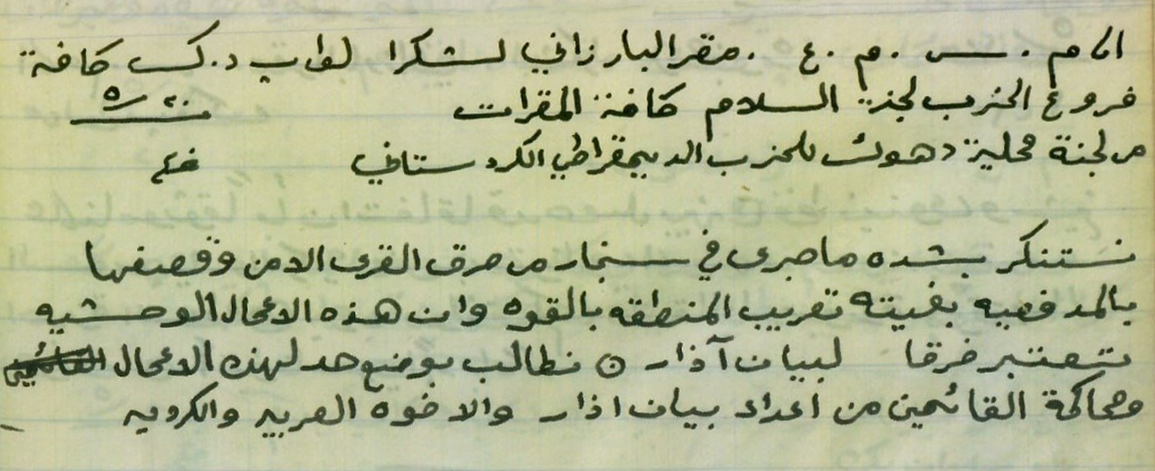 الى م . س . م . ع . مقر البارزاني لشكرا لواب د . ك كافة
فروع الحزب لجنة السلام كافة المقرات ٢٠ / ٥
من لجنة محلية دهوك للحزب الديمقراطي الكردستاني
نستنكر بشده ما جرى في سنجار من حرق القرى الامن وقصفها
بالمدفعيه بغيته تعريب المنطقه بالقوه وان هذه الاعمال الوحشيه
تعتبر خرقا لبيان آذار نطالب بوضع حد لهذه الاعمال
ومحاكمة القائمين من اعداء بيان اذار والاخوه العربيه والكرديه